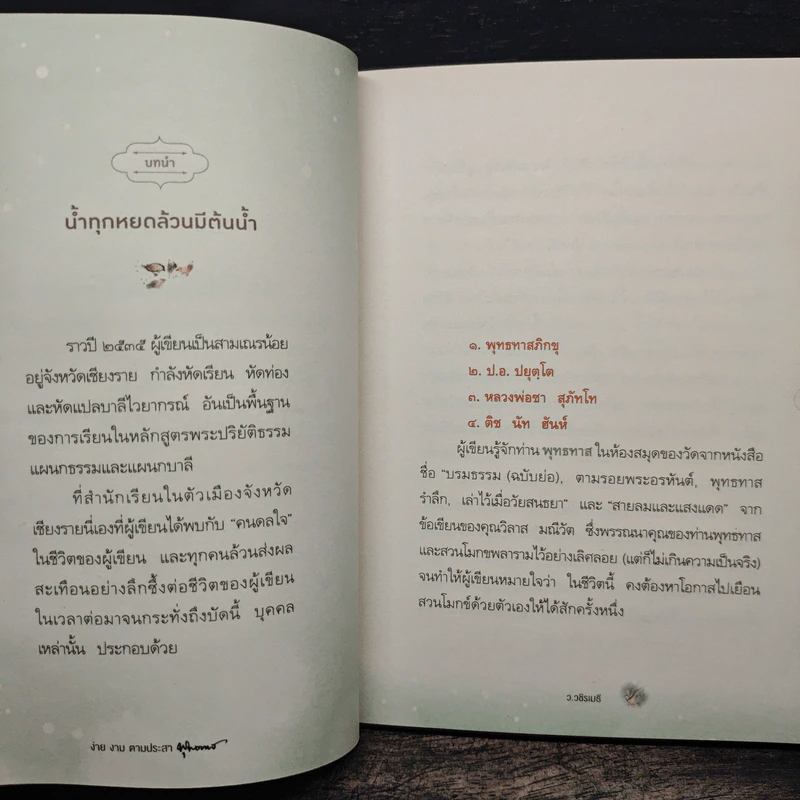 บทนำ
น้ำทุกหยดล้วนมีต้นน้ำ
ราวปี ๒๕๓๕ ผู้เขียนเป็นสามเณรน้อย
อยู่จังหวัดเชียงราย กำลังหัดเรียน หัดท่อง
และหัดแปลบาลีไวยากรณ์ อันเป็นพื้นฐาน
ของการเรียนในหลักสูตรพระปริยัติธรรม
แผนกธรรมและแผนกบาลี
ที่สำนักเรียนในตัวเมืองจังหวัด
เชียงรายนี่เองที่ผู้เขียนได้พบกับ “คนดลใจ”
ในชีวิตของผู้เขียน และทุกคนล้วนส่งผล
สะเทือนอย่างลึกซึ้งต่อชีวิตของผู้เขียน
ในเวลาต่อมาจนกระทั่งถึงบัดนี้ บุคคล
เหล่านั้น ประกอบด้วย
ง่าย งาม ตามประสา พุทธทาส
๑. พุทธทาสภิกขุ
๒. ป.อ. ปยุตฺโต
๓. หลวงพ่อชา สุภัทโท
๔. ติช นัท ฮันห์
ผู้เขียนรู้จักท่าน พุทธทาส ในห้องสมุดของวัดจากหนังสือ
ชื่อ “บรมธรรม (ฉบับย่อ), ตามรอยพระอรหันต์, พุทธทาส
รำลึก, เล่าไว้เมื่อวัยสนธยา” และ “สายลมและแสงแดด” จาก
ข้อเขียนของคุณวิลาส มณีวัต ซึ่งพรรณนาคุณของท่านพุทธทาส
และสวนโมกขพลารามไว้อย่างเลิศลอย (แต่ก็ไม่เกินความเป็นจริง)
จนทำให้ผู้เขียนหมายใจว่า ในชีวิตนี้ คงต้องหาโอกาสไปเยือน
สวนโมกข์ด้วยตัวเองให้ได้สักครั้งหนึ่ง
ว.วชิรเมธี